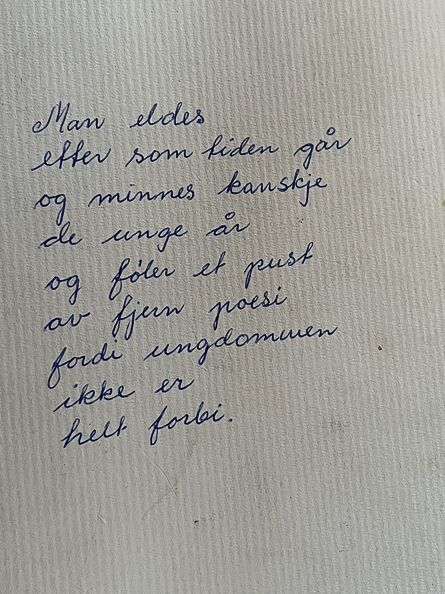 Man eldes
efter som tiden går
og minnes kanskje
de unge år
og føler et pust
av fjern poesi
fordi ungdommen
ikke er
helt forbi.